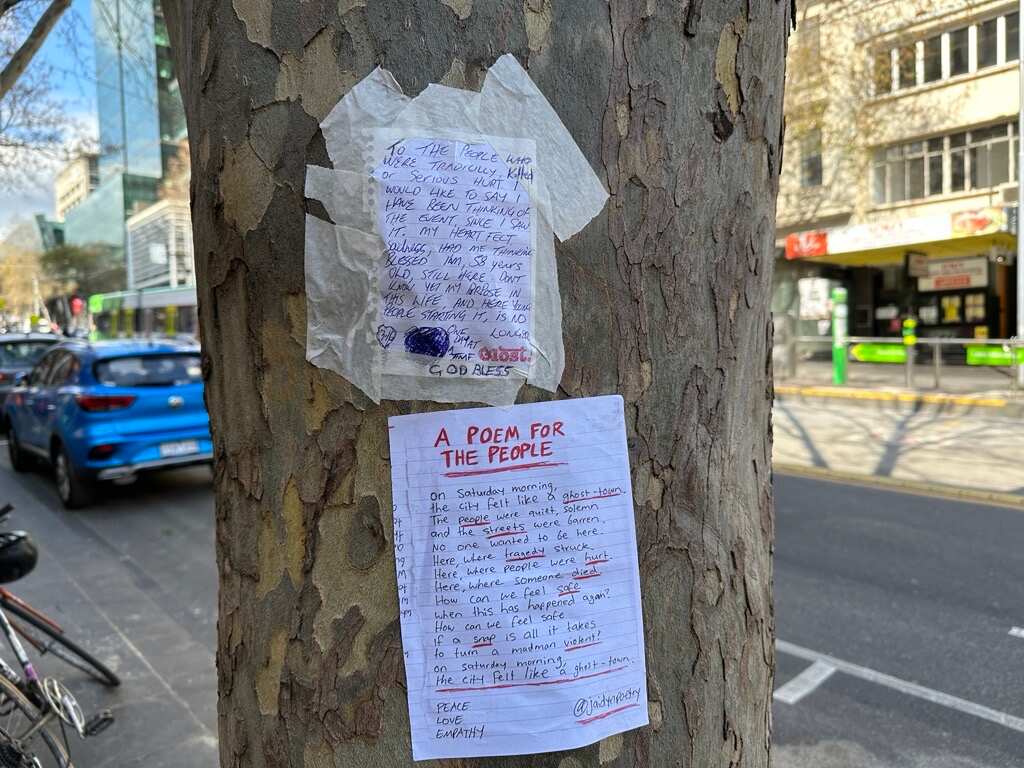 TO THE PEOPLE WHO
WERE TRADICILLY. Killed
OR SERIOUS HURT I
WOULD LIKE TO SAY I
HAVE BEEN THINKING OF
THE EVENT SINCE I SAW
IT. MY HEART FELT
SADNESS, HAD ME THINKING
BLESSED I AM, 58 years
OLD, STILL HERE DONT
KNOW YET MY PURPOSE IN
THIS LIFE AND HERE YOUNG
PEOPLE STARTING IT, IS NO
LONGER
ONE
DAY AT
A
TIME
GOD BLESS
A POEM FOR
THE PEOPLE
on Saturday morning,
the city felt like a ghost-town.
The people were quiet, solemn
and the streets were barren.
No one wanted to be here.
Here, where tragedy struck
Here, where people were hurt.
Here, where someone died.
How can we feel safe
when this has happened again?
How can we feel safe
if a snap is all it takes
to turn a madman violent?
on saturday morning,
the city felt like a ghost-town.
PEACE
LOVE
EMPATHY
@jaidynpoetry